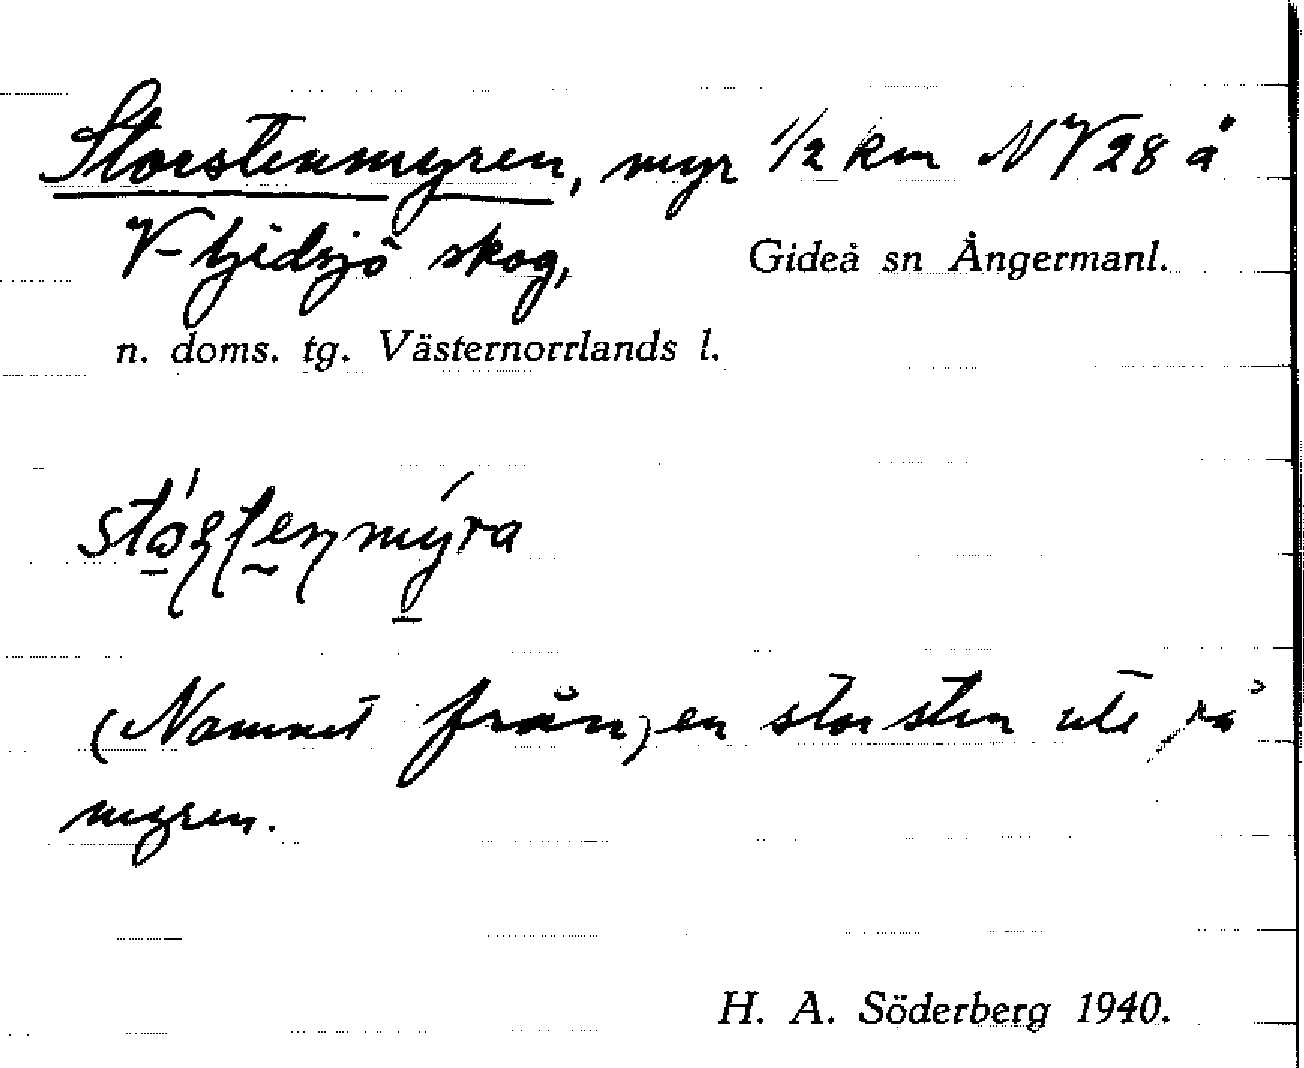 Storstenmyren, myr 1/2 km NV 28 å
V-Hjidsjö skog, Gideå sn Ångermanl.
n. doms. tg. Västernorrlands l.
(Namnet från) en stor sten ute på
myren.
H. A. Söderberg 1940.